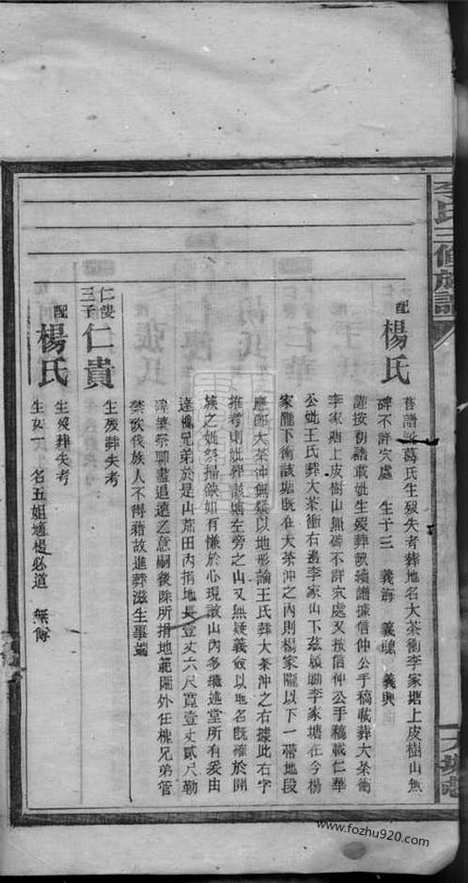 李氏三修族譜
配楊氏
舊譜誤葛氏生歿失考葬地名大茶衝李家塘上皮樹山無
碑不詳穴處 生子三 義海 義聰 義興
謹按初譜載妣生歿葬缺續譜據信仲公手稿載葬大茶衝
李家塘上皮樹山無碑不詳穴處又按信仲公手稿載仁華
公妣王氏葬大茶衝右邊李家山下茲履勘李家塘在今楊
家隴下衝該塘既在大茶沖之內則楊家隴以下一帶地段
應屬大茶沖無疑以地形論王氏葬大茶沖之右據此右字
推考則妣葬該塘左旁之山又無疑義僉以地名既確於開
族之妣祭掃缺如有慊於心現該山內多
逢 兄弟於是山荒田內捐地長壹丈六尺寬壹丈貳尺勒
碑舉祭聊盡追遠之意嗣後除所捐地範圍外任 兄弟管
禁歇伐族人不得藉故進葬滋生事端
仁 三子 仁貴
生歿葬失考
配楊氏
生歿葬失考
生女一 名五姐適楊必道 無傳
www.fozhu920.com